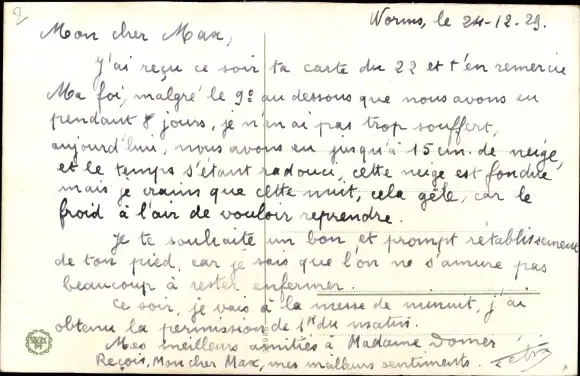 2
Worms, le 24-12-29.
Mon cher Max,
J'ai reçu ce soir ta carte du 22 et t'en remercie
Ma foi, malgré le 9° au dessous que nous avons eu
pendant 8 jours, je n'en ai pas trop souffert,
aujourd'hui, nous avons eu jusqu'à 15 cm. de neige,
et le temps s'étant radouci, cette neige est fondue
mais je crains que cette nuit, cela gêle, car le
froid à l'air de vouloir reprendre.
Je te souhaite un bon et prompt rétablissement
de ton pied, car je sais que l'on ne s'amuse pas
beaucoup à rester enfermer.
Ce soir, je vais à la messe de minuit, j'ai
obtenu la permission de 1h du matin.
Mes meilleurs amitiés à Madame Domer
Reçois, Mon cher Max, mes meilleurs sentiments.